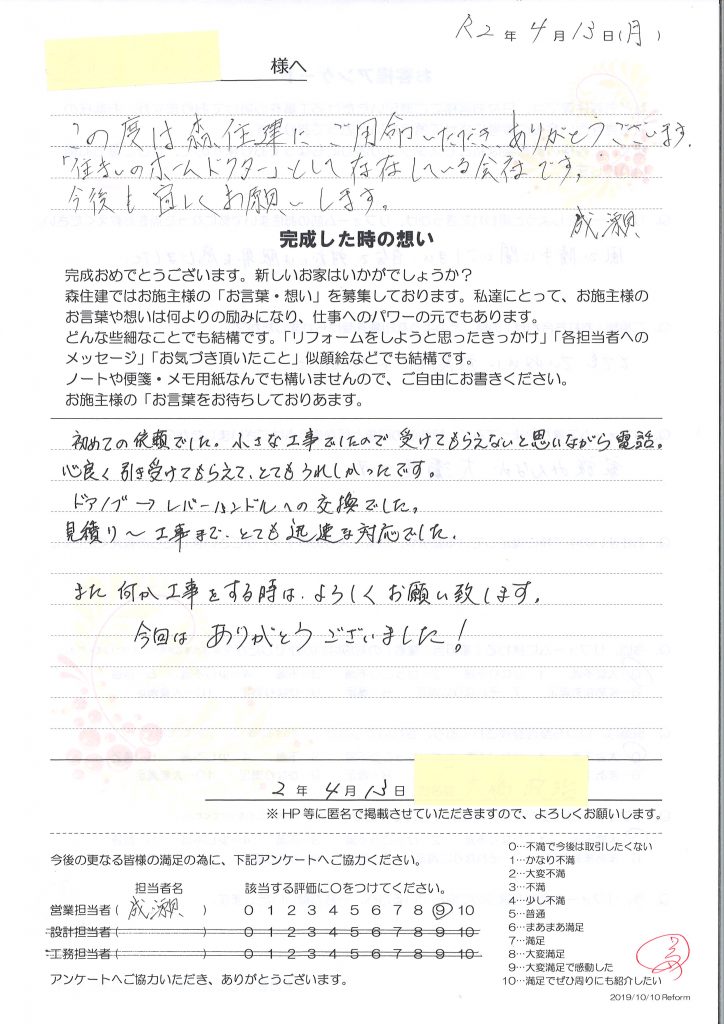 R2 年 4 月 13 日(月)
様へ
この度は森住建にご用命いただき、ありがとうございます。
「住まいのホームドクター」として存在している会社です。
今後も宜しくお願いします。
成瀬
完成した時の想い
完成おめでとうございます。新しいお家はいかがでしょうか？
森住建ではお施主様の「お言葉・想い」を募集しております。私達にとって、お施主様の
お言葉や想いは何よりの励みになり、仕事へのパワーの元でもあります。
どんな些細なことでも結構です。「リフォームをしようと思ったきっかけ」「各担当者への
メッセージ」「お気づき頂いたこと」似顔絵などでも結構です。
ノートや便箋・メモ用紙なんでも構いませんので、ご自由にお書きください。
お施主様の「お言葉をお待ちしておりあます。
初めての依頼でした。小さな工事でしたので受けてもらえないと思いながら電話。
心良く引き受けてもらえて、とてもうれしかったです。
ドアノブ→レバーハンドルへの交換でした。
見積り〜工事まで、とても迅速な対応でした。
また何か工事をする時は、よろしくお願い致します。
今回はありがとうございました！
2 年 4 月 13 日
※HP等に匿名で掲載させていただきますので、よろしくお願いします。
今後の更なる皆様の満足の為に、下記アンケートへご協力ください。
担当者名 該当する評価に○をつけてください。
営業担当者( 成瀬 ) 0 1 2 3 4 5 6 7 8 9 10
設計担当者( ) 0 1 2 3 4 5 6 7 8 9 10
工務担当者( ) 0 1 2 3 4 5 6 7 8 9 10
アンケートへご協力いただき、ありがとうございます。
0…不満で今後は取引したくない
1…かなり不満
2…大変不満
3…不満
4…少し不満
5…普通
6…まあまあ満足
7…満足
8…大変満足
9…大変満足で感動した
10…満足でぜひ周りにも紹介したい
2019/10/10 Reform